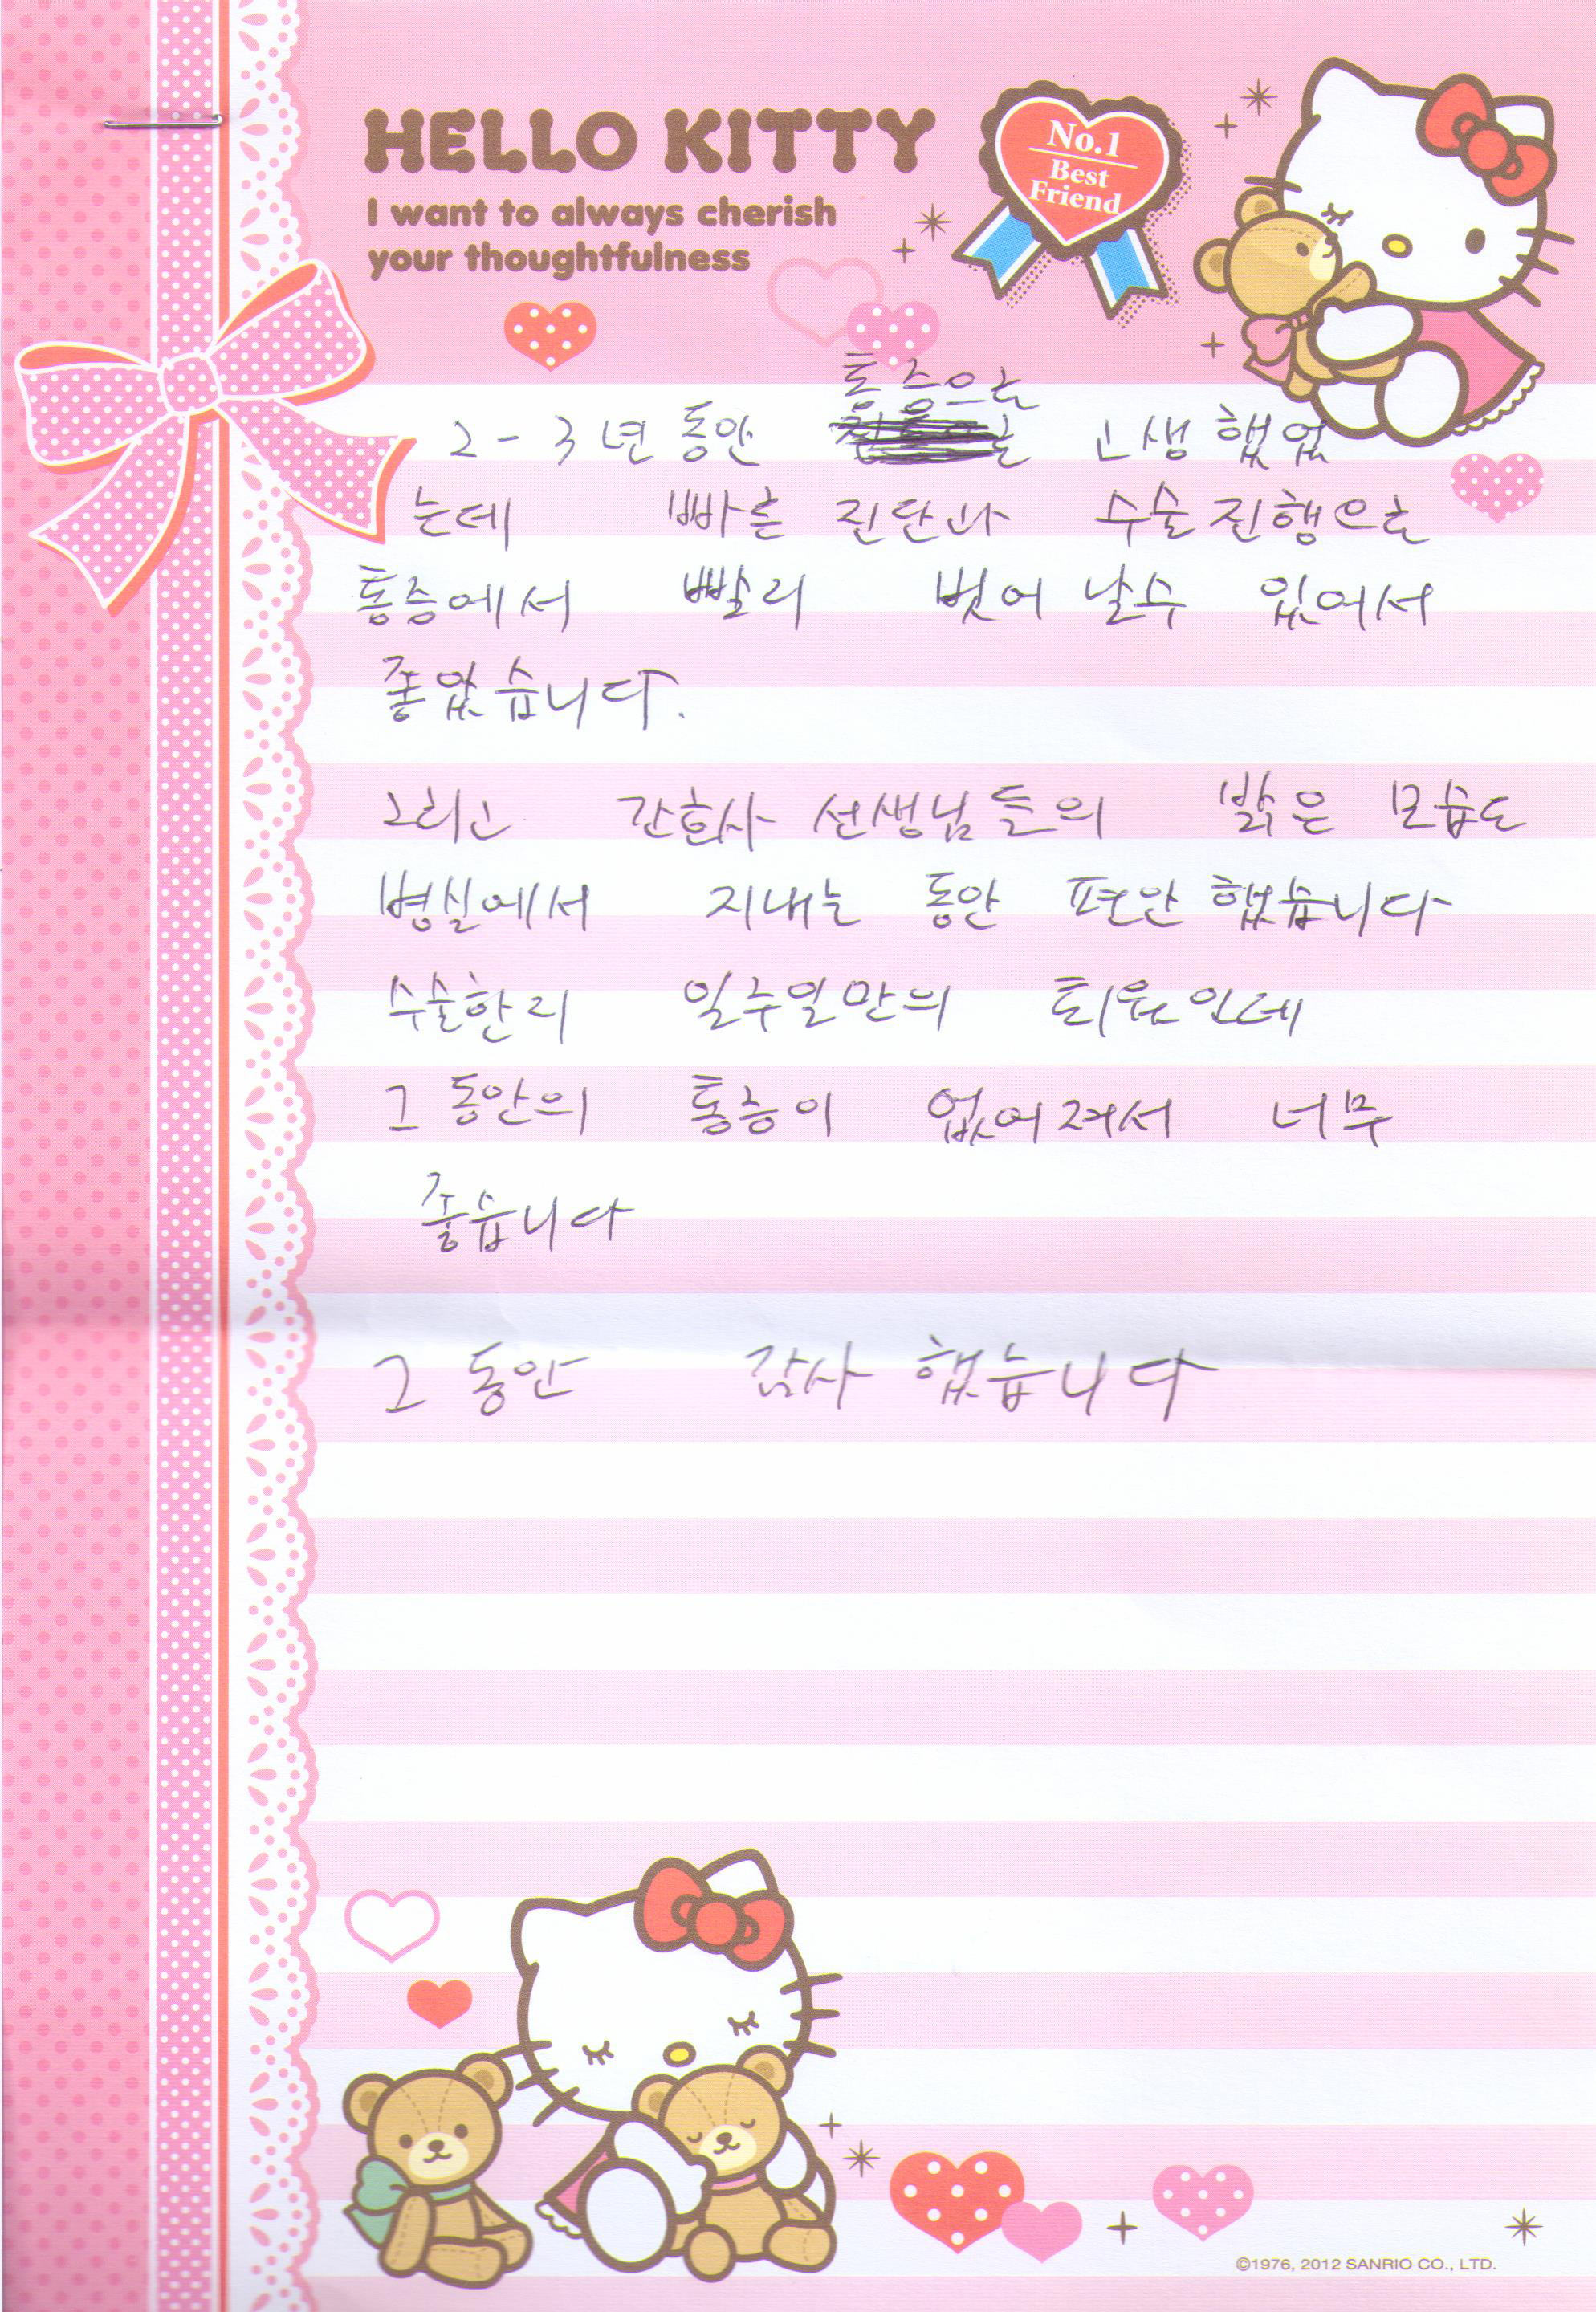 HELLO KITTY
I want to always cherish
your thoughtfulness
No.1
Best
Friend
통증으로
2-3년 동안 고생 했었
는데 빠른 진단과 수술진행으로
통증에서 빨리 벗어 날수 있어서
좋았습니다.
그리고 간호사 선생님들의 밝은 모습도
병실에서 지내는 동안 편안 했습니다
수술한리 일주일만의 퇴원인데
그 동안의 통증이 없어져서 너무
좋습니다
그 동안 감사 했습니다
©1976, 2012 SANRIO CO., LTD.